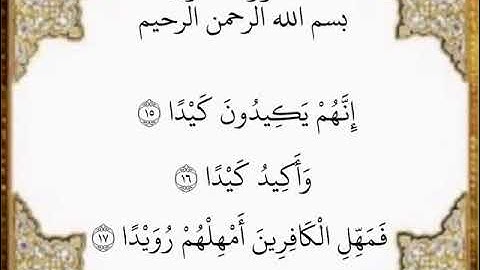 بسم الله الرحمن الرحيم
إِنَّهُمْ يَكِيدُونَ كَيْدًا ۝١٥
وَأَكِيدُ كَيْدًا ۝١٦
فَمَهِّلِ الْكَافِرِينَ أَمْهِلْهُمْ رُوَيْدًا ۝١٧